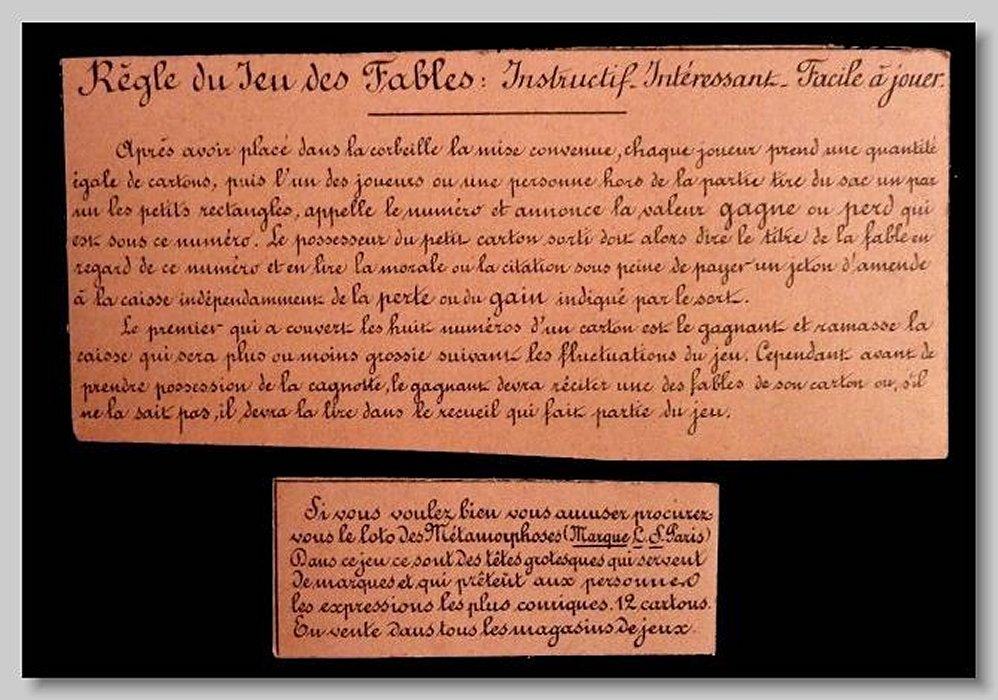 Règle du Jeu des Fables: Instructif_Intéressant_Facile à jouer.
Après avoir placé dans la corbeille la mise convenue, chaque joueur prend une quantité
égale de cartons, puis l'un des joueurs ou une personne hors de la partie tire du sac un par
un les petits rectangles, appelle le numéro et annonce la valeur gagne ou perd qui
est sous ce numéro. Le possesseur du petit carton sorti doit alors dire le titre de la fable en
regard de ce numéro et en lire la morale ou la citation sous peine de payer un jeton d'amende
à la caisse indépendamment de la perte ou du gain indiqué par le sort.
Le premier qui a couvert les huit numéros d'un carton est le gagnant et ramasse la
caisse qui sera plus ou moins grossie suivant les fluctuations du jeu. Cependant avant de
prendre possession de la cagnotte, le gagnant devra réciter une des fables de son carton ou, s'il
ne la sait pas, il devra la lire dans le recueil qui fait partie du jeu.
Si vous voulez bien vous amuser procurez
vous le loto des Métamorphoses (Marque L. S. Paris)
Dans ce jeu ce sont des têtes grotesques qui servent
de marques et qui prêtent aux personnes
les expressions les plus comiques. 12 cartons.
En vente dans tous les magasins de jeux.